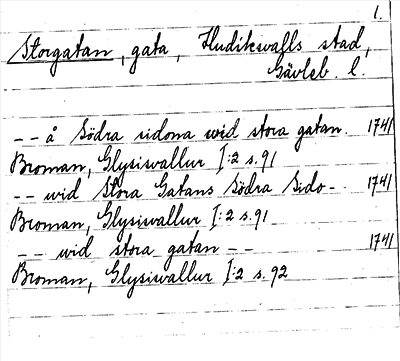 1.
Storgatan, gata, Hudikswalls stad,
Gävleb. l.
-- å Södra sidona wid stora gatan. 1741
Broman, Glysiswallur I:2 s. 91
-- wid Stora Gatans Södra Sido -- 1741
Broman, Glysiswallur I:2 s. 91
-- wid stora gatan -- 1741
Broman, Glysiswallur I:2 s. 92